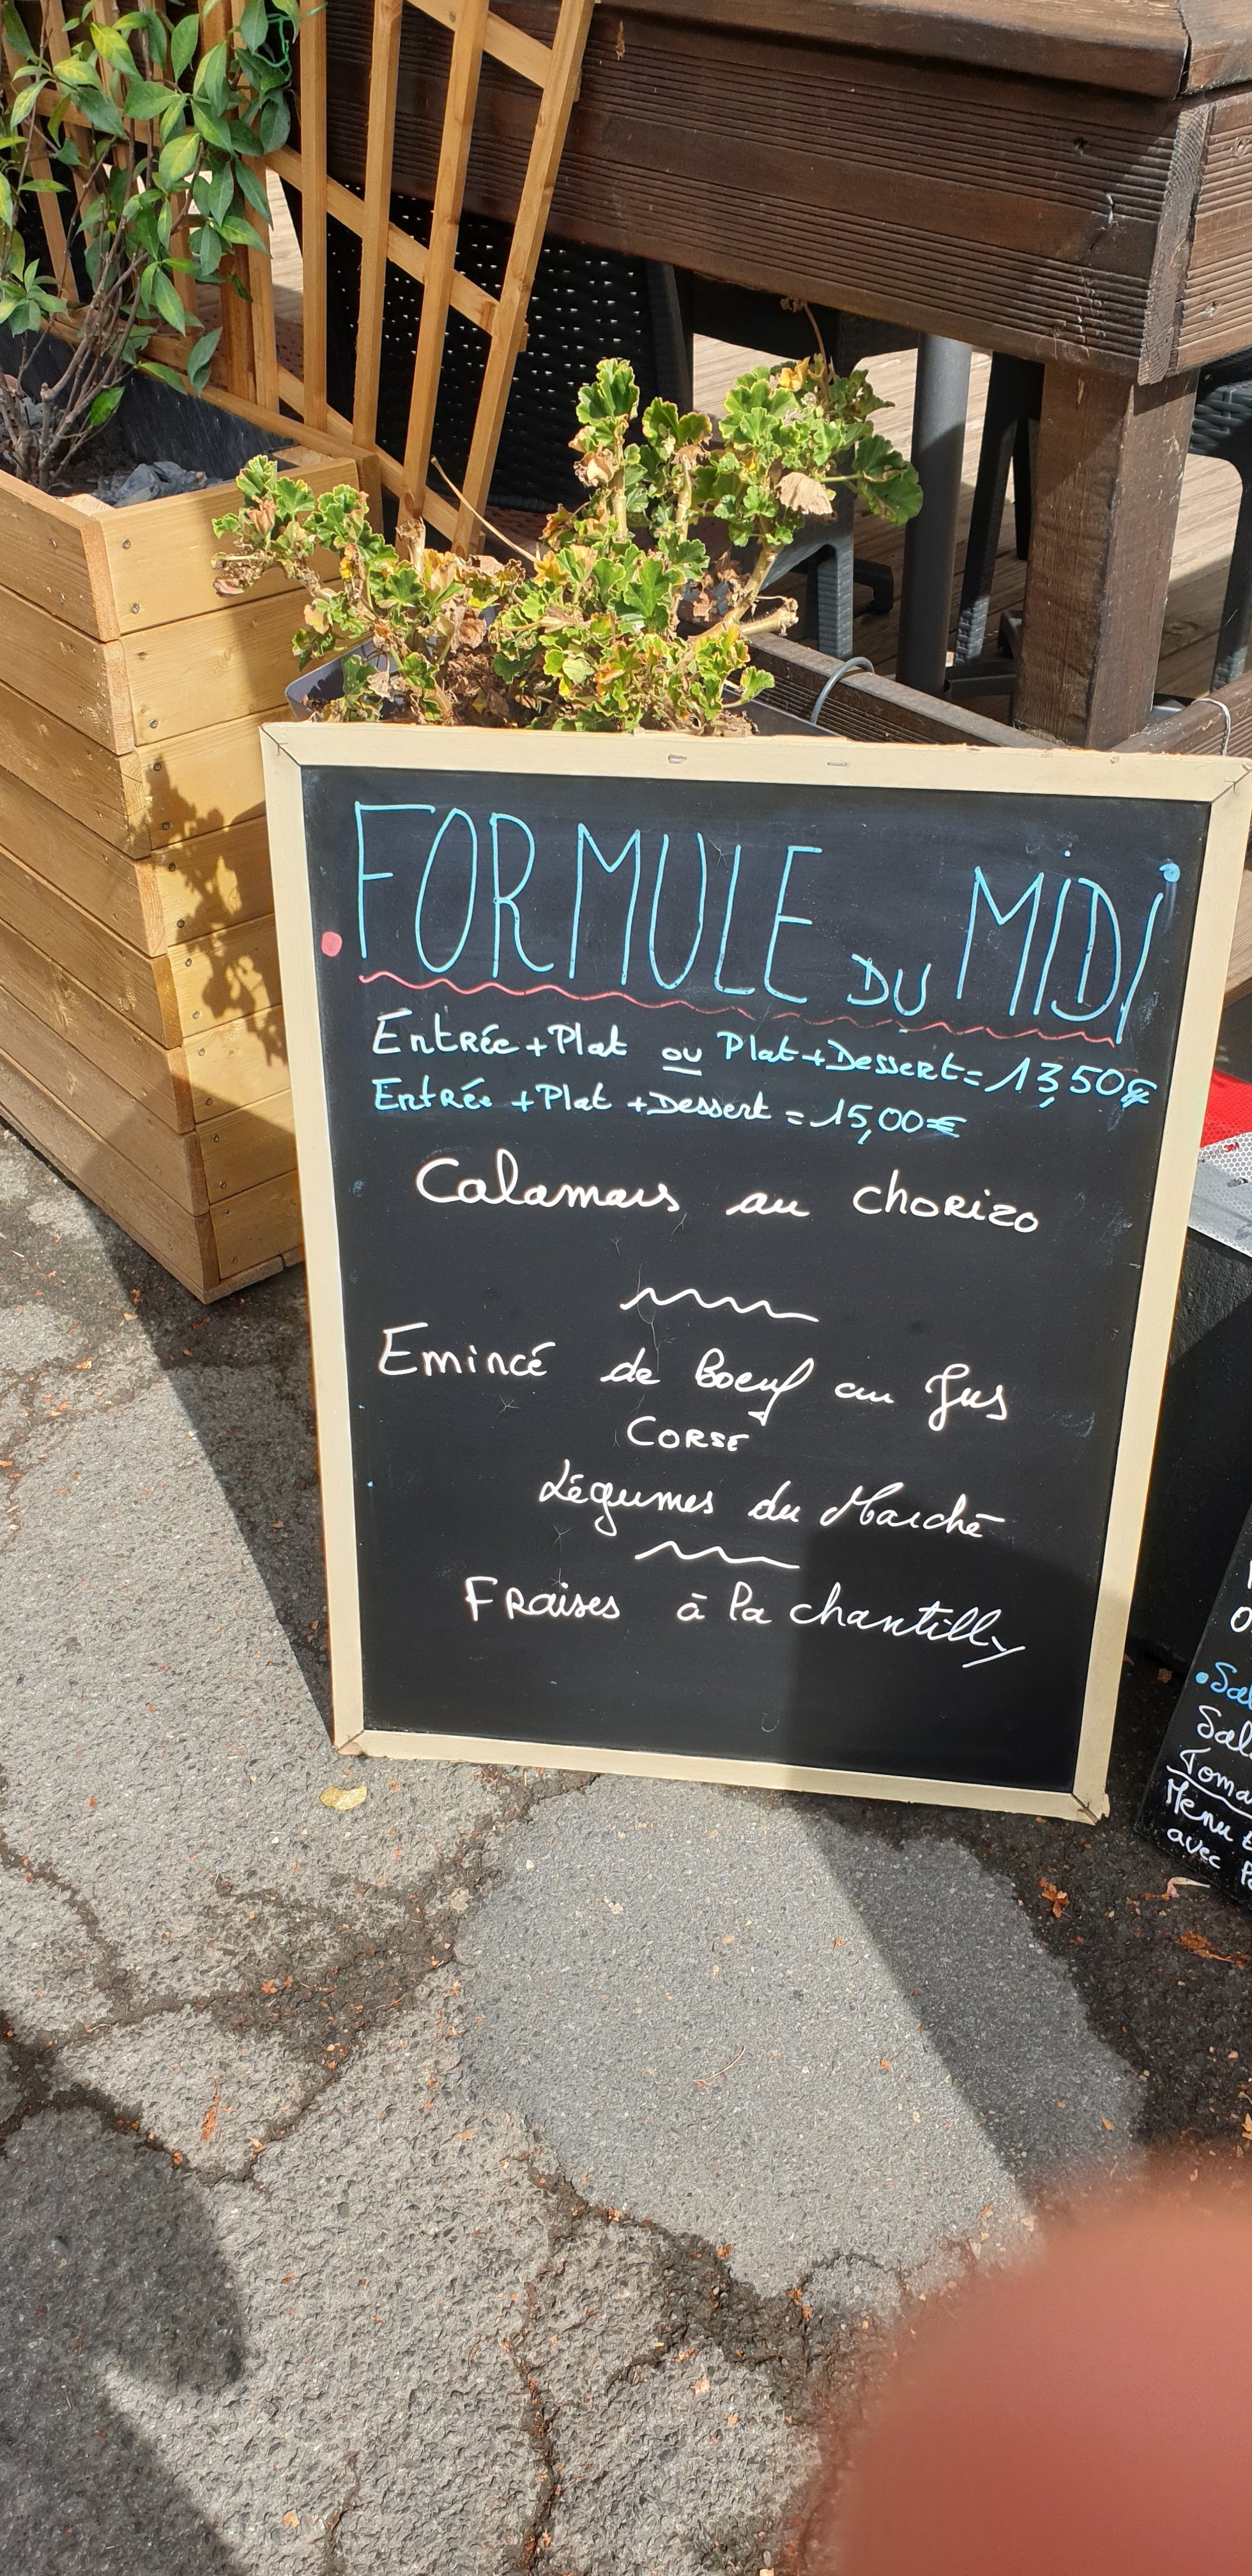 FORMULE DU MiDi
Entrée + Plat ou Plat + Dessert = 13,50€
Entrée + Plat + Dessert = 15,00€
Calamars au chorizo
Emincé de Boeuf au Jus
CORSE
Légumes du Marché
Fraises à la chantilly
Menu
avec